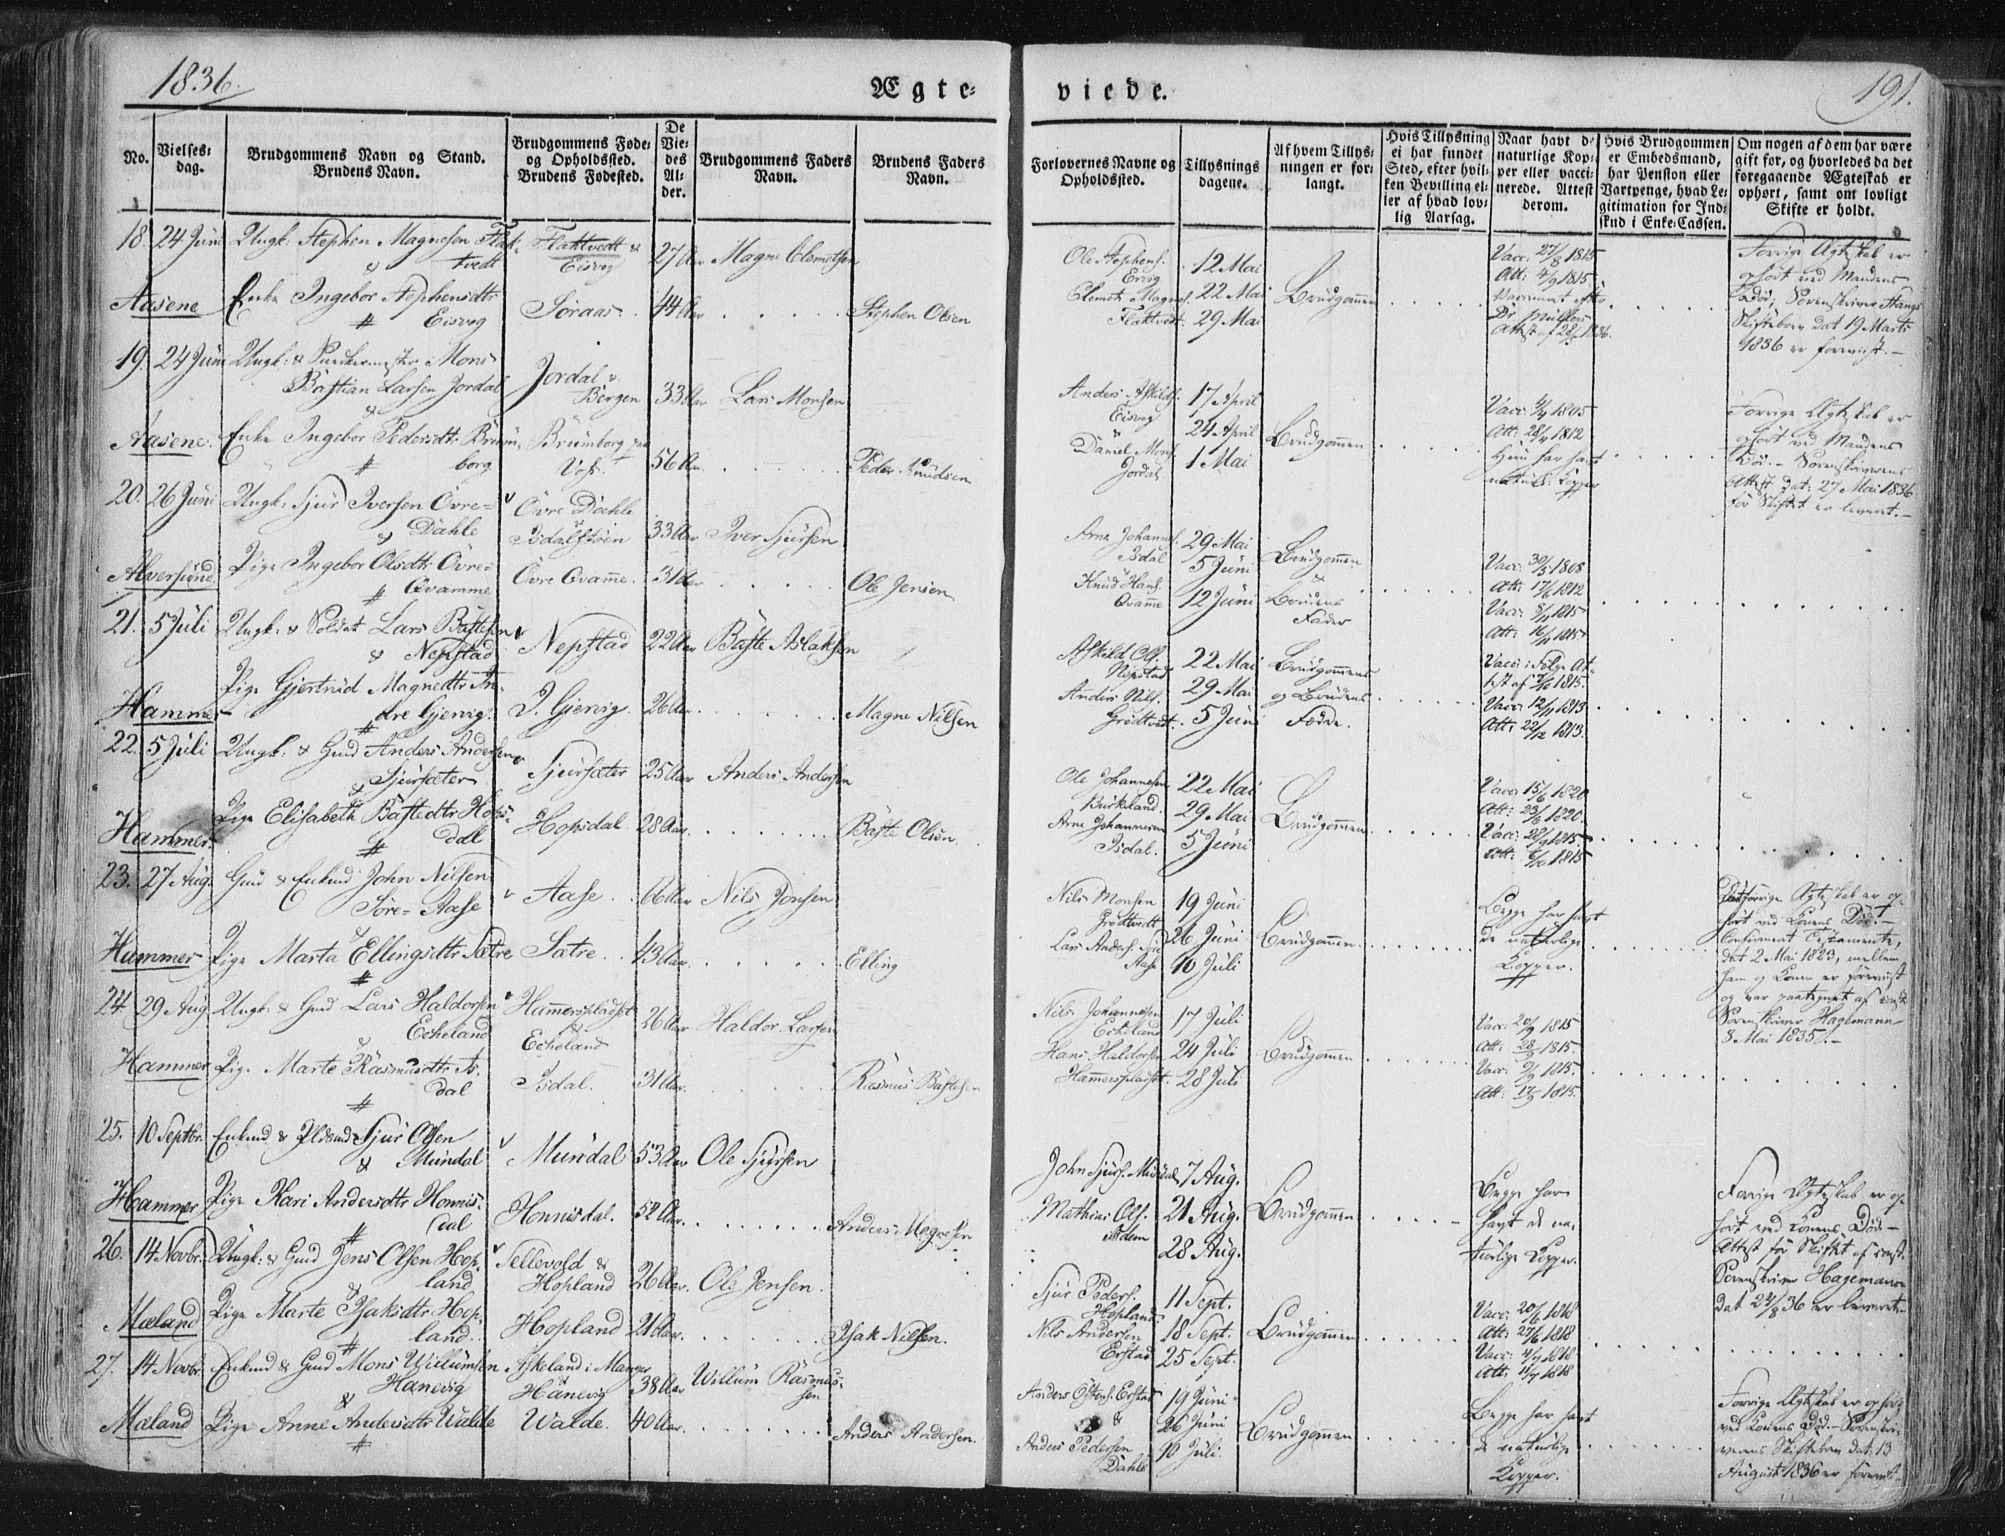 1836.
Ægte-
viede.
191.
No.
Vielses-
dag.
Brudgommens Navn og Stand.
Brudens Navn.
Brudgommens Føde-
og Opholdssted.
Brudens Fødested.
De
Vie-
des
Al-
der.
Brudgommens Faders
Navn.
Brudens Faders
Navn.
Forlovernes Navne og
Opholdssted.
Tillysnings
dagene.
Af hvem Tillys-
ningen er for-
langt.
Hvis Tillysning
ei har fundet
Sted, efter hvil-
ken Bevilling el-
ler af hvad lov-
lig Aarsag.
Naar havt de
naturlige Kop-
per eller vacci-
nerede. Attest
derom.
Hvis Brudgommen
er Embedsmand,
har Pension eller
Vartpenge, hvad Le-
gitimation for Ind-
skud i Enke-Cassen.
Om nogen af dem har være
gift før, og hvorledes da det
foregaaende Ægteskab er
ophørt, samt om lovligt
Skifte er holdt.
18. 24 Juni Ungk: Stephen Magnesen Flak-
tvedt
Flaktvedt &
Eisvog
27 Aar Magne Clemetsen
Aasene Enke Ingebor Stephensdtr
Eisvog
Søraas 44 Aar Stephen Olsen
Ole Stephens.
12 Mai
Clemet Magnes.
Flaktvedt.
22 Mai
29 Mai
Brudgommen
Vacc: 27/8 1815
Att: 4/9 1815
Forrige Ægteskab er
ophørt ved Mandens
Død; Sorenskriver
Skiftebrev dat 19 Marts
1836 er foreviist.-
19. 24 Juni Ungk: & Mons
Bastian Larsen Jordal
Jordal v.
Bergen 33 Aar Lars Monsen
Aasene. Enke Ingebor Pedersdtr Brüm-
borg
Brümborg paa
Vos. 56 Aar Peder Knudsen
Anders Askilds.
Eisvog
17 April
24 April
Daniel Mons.
Jordal
1 Mai
Brudgommen
1805
1812
Hun har havt
naturl: Kopper
Forrige Ægteskab er
ophørt ved Mandens
Død.- Sorenskriverens
Attest dat: 27 Mai 1836
for Skiftet er leveret.-
20. 26 Juni Ungk: Sjur Iversen Øvre-
Dahle
Øvre Dahle
&
Isdalstøen 33 Aar Iver Sjursen
Alversund. Pige Ingebor Olsdtr Øvre-
Qvamme
Øvre Qvamme. 31 Aar Ole Jensen
Arne Johannes.
Isdal
29 Mai
5 Juni
Knud Hans.
Qvamme
12 Juni
Brudgommen
&
Brudens
Fader
Vacc: 30/5 1808
Att: 17/6 1812
1815
1815
21. 5 Juli Ungk: & Soldat Lars Bastesen
& Nepstad
Nepstad 22 Aar Baste Aslaksen
Hammer Pige Gjertrud Magnedtr In-
dre Gjervig.
I. Gjervig 26 Aar Magne Nilsen
Askild Ols.
Nepstad
22 Mai
29 Mai
Anders Nils.
Grødtvedt. 5 Juni
Brudgommens
og Brudens
Fædre.
Vacc: i Følge At-
test af 1815.
Vacc: 12/11 1813
Att: 22/12 1813.
22. 5 Juli Ungk: & Gmd Anders Andersen
& Sjursæter.
Sjursæter 25 Aar Anders Andersen
Hammer. Pige Elisabeth Bastedtr Hops-
dal
Hopsdal. 28 Aar. Baste Olsen.
Ole Johannesen
Birkeland.
22 Mai
29 Mai
Arne Johannesen
Isdal. 5 Juni
Brudgommen
Vacc: 15/6 1820
Att: 23/6 1820.
Vacc: 28/9 1815.
Att: 1815
23. 27 Aug. Gmd & Enkmd John Nilsen
Søre-Aase
Aase. 66 Aar Nils Jonsen
Hammer Pige Marta Ellingsdtr Sætre
Sætre. 43 Aar. Elling
Nils Monsen
Grødtvedt
19 Juni
26 Juni
Lars Anders. Søre
Aase
10 Juli
Brudgommen.
Begge har havt
de naturlige
Kopper.
forrige Ægteskab er op-
hørt ved Konens Død.-
Confirmeret Testamente,
dat 2 Mai 1823, mellem
ham og Konen er foreviist
og var paategnet af const.
Sorenskriver Hagemann
8 Mai 1835.-
24 29 Aug. Ungk: & Gmd Lars Haldorsen
Echeland
Hammerspladset
&
Echeland
26 Aar Haldor Larsen
Hammer Pige Marte Rasmusdtr Is-
dal
Isdal. 31 Aar. Rasmus Bastesen
Nils Johannesen
Echeland
17 Juli
Hans Haldorsen
Hammerspladset.
24 Juli
28 Juli
Brudgommen
Vacc: 20/9 1815
Att: 28/9 1815.
Vacc: 9/9 1815.
Att: 17/9 1815.
25. 10 Septbr. Enkmd & Sjur Olsen
& Mundal
Mundal 53 Aar Ole Sjursen
Hammer Pige Kari Andersdtr Honnis-
dal
Honnisdal. 52 Aar. Anders Magnesen
John Sjurs. Mundal 7 Aug.
Mathias Ols.
ibidem
21 Aug.
28 Aug.
Brudgommen
Begge har
havt de na-
turlige Kopper.
Forrige Ægteskab er op-
hørt ved Konens Død-
Attest for Skiftet af const.
Sorenskriver Hagemann
dat 24/8 36 er leveret-
26. 14 Novbr. Ungk: & Gmd Jens Olsen Hop-
land
&
Tellevold &
Hopland 26 Aar. Ole Jensen.
Mæland Pige Marte Isaksdtr Hop-
land.
Hopland 21 Aar. Isak Nilsen.
Sjur Peders.
Hopland
11 Sept.
Nils Andersen
Erstad
18 Sept.
25 Sept.
Brudgommen
Vacc: 20/6 1818
Att: 27/6 1818
Vacc: 4/7 1818
Att: 11/7 1818
27. 14 Novbr. Enkmd & Gmd Mons Willumsen
Hanevig
&
Askeland i Manger
Hanevig 38 Aar Willum Rasmus-
sen
Mæland Pige Anne Andersdtr Walde
Walde. 40 Aar. Anders Andersen.
Anders Erstad
&
19 Juni
26 Juni
Anders Pedersen
Dahle
10 Juli.
Brudgommen
Begge har havt
de naturlige
Kopper.
Forrige Ægteskab er ophørt
ved Konens Død.- Sorenskri-
verens Skiftebrev dat: 13
August 1836 er foreviist-